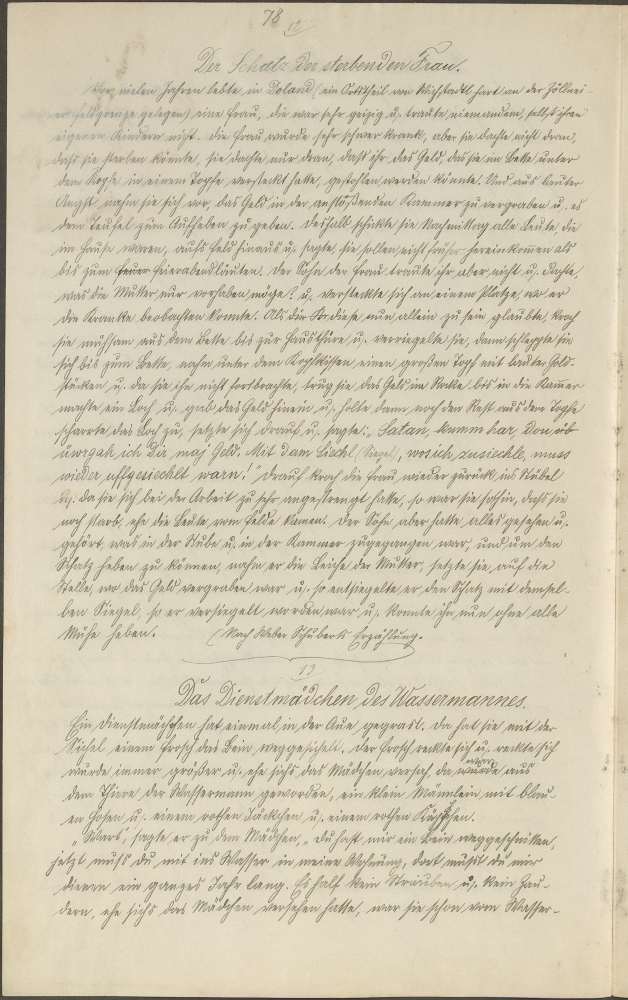 78
12
Der Schatz der sterbenden Frau.
Vor vielen Jahren lebte in Doland (ein Ortstheil von Wichstadtl hart an der Zöllnei-
er Feldgrenze gelegen) eine Frau, die war sehr geizig u. traute niemandem, selbst ihren
eigenen Kindern nicht. Die Frau wurde sehr schwer krank, aber sie dachte nicht dran,
daß sie sterben könnte, sie dachte nur dran, daß ihr das Geld, das sie im Bette unter
dem Kopfe in einem Topfe versteckt hatte, gestohlen werden könnte. Und aus lauter
Angst nahm sie sich vor, das Geld in der anstoßenden Kammer zu vergraben u. es
dem Teufel zum Aufheben zu geben. Deshalb schickte sie Nachmittag alle Leute, die
im Hause waren, aufs Feld hinaus u. sagte, sie sollen nicht früher hereinkommen als
bis zum Feierabendläuten. Der Sohn der Frau traute ihr aber nicht u. dachte,
was die Mutter nur vorhaben möge? u. versteckte sich an einem Platze, wo er
die Kranke beobachten konnte. Als die diese nun allein zu sein glaubte, kroch
sie mühsam aus dem Bette bis zur Hausthüre u. verriegelte sie, dann schleppte sie
sich bis zum Bette, nahm unter dem Kopfkissen einen großen Topf mit lauter Gold-
stücken u. da sie ihn nicht fortbrachte, trug sie das Geld im Rocke bis in die Kammer
machte ein Loch u. gab das Geld hinein u. holte dann noch den Rest aus dem Topfe
scharrte das Loch zu, setzte sich drauf u. sagte: „Satan, kumm har, Don üb
üwrgah ich Dir maj Geld. Mit dam Siechl (Siegel), wosich zusiechle, muss
wieder uffgesiechlt warn!" Drauf kroch die Frau wieder zurück ins Stübel
u. da sie sich bei der Arbeit zu sehr angestrengt hatte, so war sie sohin, daß sie
noch starb, ehe die Leute vom Felde kamen. Der Sohn aber hatte alles gesehen u.
gehört, was in der Stube u. in der Kammer zugegangen war, und um den
Schatz heben zu können, nahm er die Leiche der Mutter, setzte sie auf die
Stelle, wo das Geld vergraben war u. so entsiegelte er den Schatz mit demsel-
ben Siegel, so er versiegelt worden war u. konnte ihn nun ohne alle
Mühe heben. (Nach Weber Schuberts Erzählung.
13
Das Dienstmädchen des Wassermannes.
Ein Dienstmädchen hat einmal in der Aue gegrast. Da hat sie mit der
Sichel einem Frosch das Bein weggesichelt. Der Frosch reckte sich u. reckte sich
wurde immer größer u. ehe sichs das Mädchen versah, da war aus
dem Thiere der Wassermann geworden, ein klein Männlein mit blau-
en Hosen u. einem rothen Jäckchen u. einem rothen Käppchen.
„Wart", sagte er zu dem Mädchen, „du hast mir ein Bein weggeschnitten,
jetzt mußt du mit ins Wasser in meine Wohnung, dort mußt du mir
dienen ein ganzes Jahr lang. Es half kein Sträuben u. kein Zau-
dern, ehe sichs das Mädchen versehen hatte, war sie schon vom Wasser-